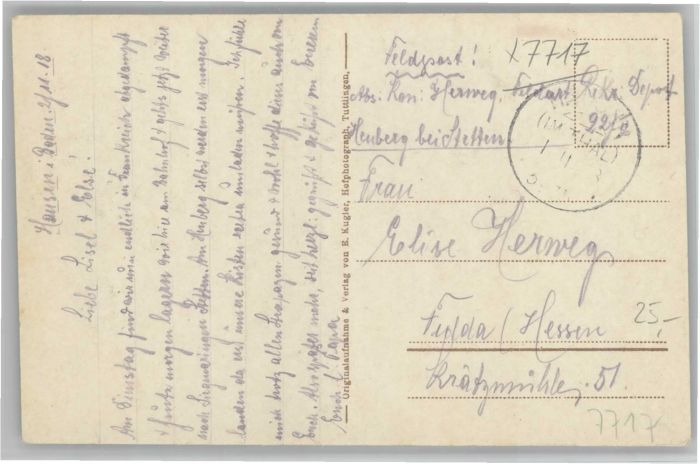 Hausen i. Baden. 2/11.18
Liebe Lisel & Else!
Am Dienstag sind wir nun endlich in Frankreich abgedampft
& heute morgen lagern wir hier am Bahnhof & gehts jetzt weiter
nach Sigmaringen Stetten. Am Heuberg selbst werden erst morgen
landen da erst unsere Kisten ausladen müssen. Ich fühle
mich trotz allen Strapazen gesund & wohl & hoffe dieses auch von
Euch. Also später mehr, seid herzl. gegrüßt & geküßt von Eurem
Papa
Originalaufnahme & Verlag von E. Kugler, Hofphotograph, Tuttlingen.
Feldpost!
X7717
Abs: Kan. Herweg, Feldart. Rekr. Depot
Heuberg bei Stetten.
Frau
Elise Herweg
Fulda (Hessen
Krätzmühle, 51.
25,-
7717